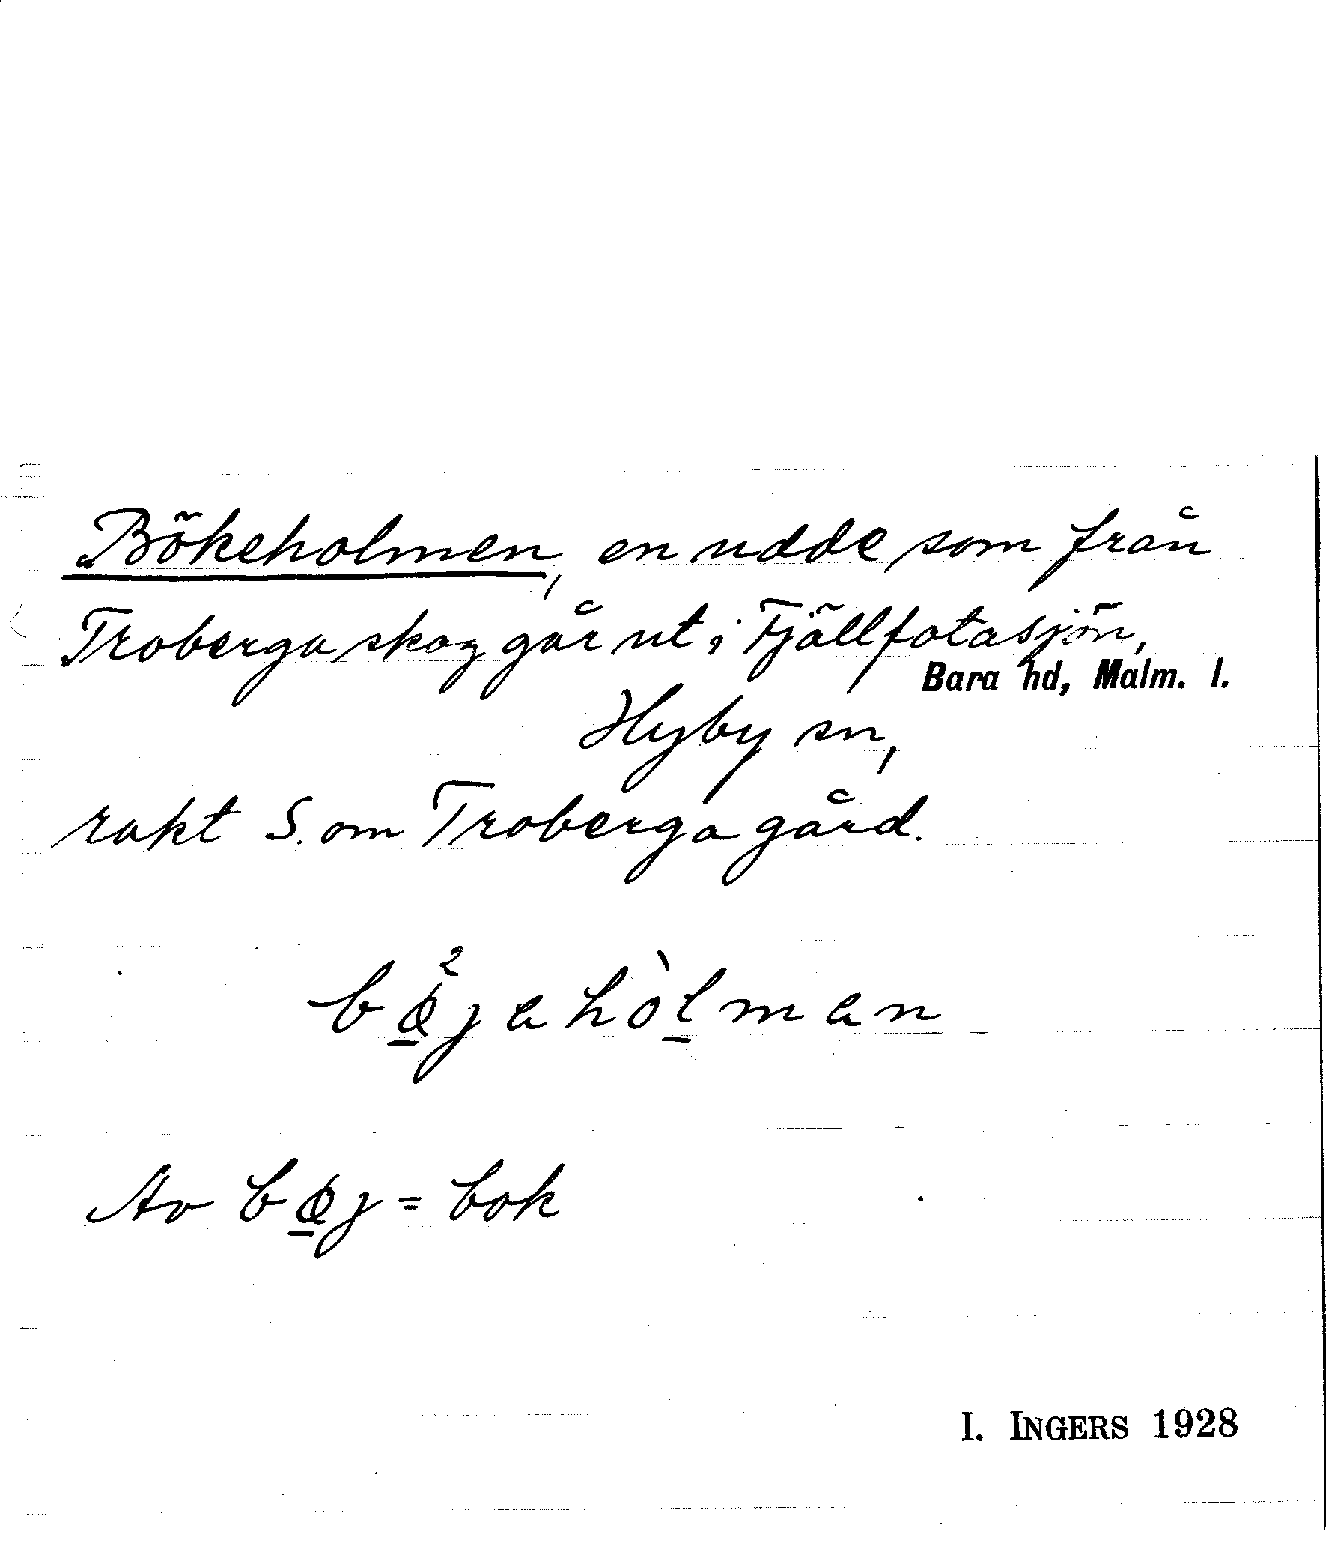 Bökeholmen, en udde som från
Troberga skog går ut i Fjällfotasjön,
Bara hd, Malm. l.
Hyby sn,
rakt S. om Troberga gård.
bø̲²jahòl̲man
Av bø̲j = bok
I. INGERS 1928